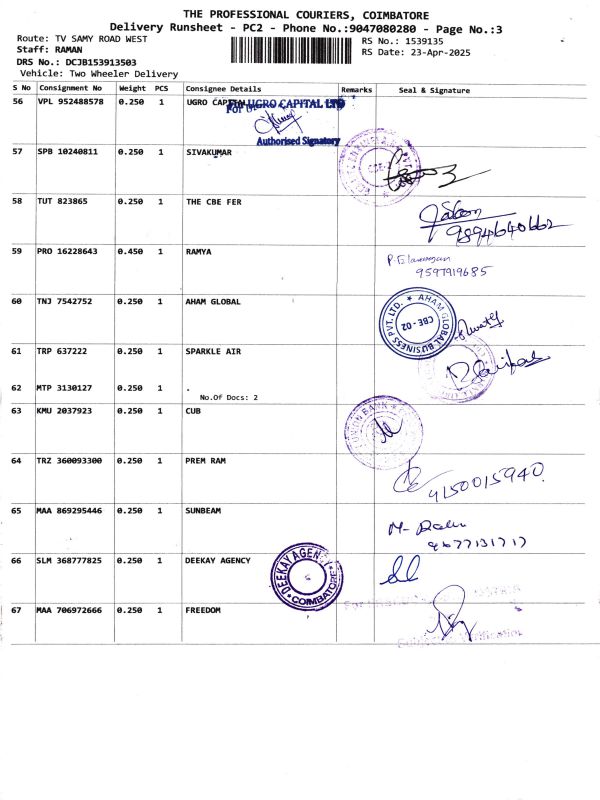 THE PROFESSIONAL COURIERS, COIMBATORE
Delivery Runsheet - PC2 - Phone No.:9047080280 - Page No.:3
Route: TV SAMY ROAD WEST
RS No.: 1539135
Staff: RAMAN
RS Date: 23-Apr-2025
DRS No.: DCJB153913503
Vehicle: Two Wheeler Delivery
S No Consignment No Weight PCS Consignee Details Remarks Seal & Signature
56 VPL 952488578 0.250 1 UGRO CAPITAL
For UGRO CAPITAL LTD
Authorised Signatory
57 SPB 10240811 0.250 1 SIVAKUMAR
58 TUT 823865 0.250 1 THE CBE FER
9894640662
59 PRO 16228643 0.450 1 RAMYA
9597919685
60 TNJ 7542752 0.250 1 AHAM GLOBAL
AHAM GLOBAL BUSINESS PVT. LTD.
CBE - 02
61 TRP 637222 0.250 1 SPARKLE AIR
62 MTP 3130127 0.250 1 .
No.Of Docs: 2
63 KMU 2037923 0.250 1 CUB
64 TRZ 360093300 0.250 1 PREM RAM
9150015940
65 MAA 869295446 0.250 1 SUNBEAM
9677131717
66 SLM 368777825 0.250 1 DEEKAY AGENCY
DEEKAY AGENCY
COIMBATORE
67 MAA 706972666 0.250 1 FREEDOM